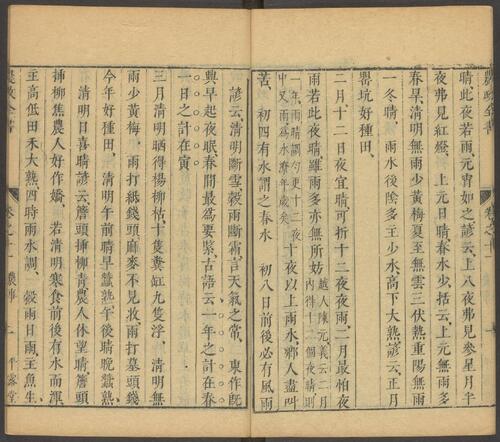 晴此夜若雨元宵如之諺云上八夜弗見參星月半
夜弗見紅燈 上元日晴春水少括云上元無雨多
春旱清明無雨少黃梅夏至無雲三伏熱重陽無雨
一冬晴 雨水後陰多主少水高下大熟諺云正月
罌坑好種田
二月十二日夜宜晴可折十二夜夜雨二月最怕夜
雨若此夜晴雖雨多亦無所妨 越人陳元義云二月
內得十二個夜晴則
一年雨晴調勻更十二夜
中又雨為水潦年歲矣 十夜以上雨水鄉人盡叫
苦 初四有水謂之春水 初八日前後必有風雨
諺云清明斷雪穀雨斷霜言天氣之常 東作既
興早起夜眠春間最爲要緊古語云一年之計在春
一日之計在寅
三月清明晒得楊柳枯十隻糞缸九隻浮 清明無
雨少黃梅 雨打紙錢頭麻麥不見收雨打墓頭錢
今年好種田 清明午前晴早蠶熟午後晴晚蠶熟
清明日喜晴諺云簷頭插柳青農人休望晴簷頭
插柳焦農人好作嬌 若清明寒食前後有水而渾
主高低田禾大熟四時雨水調 穀雨日雨主魚生
農政全書 卷之十一 農事 一 平露堂